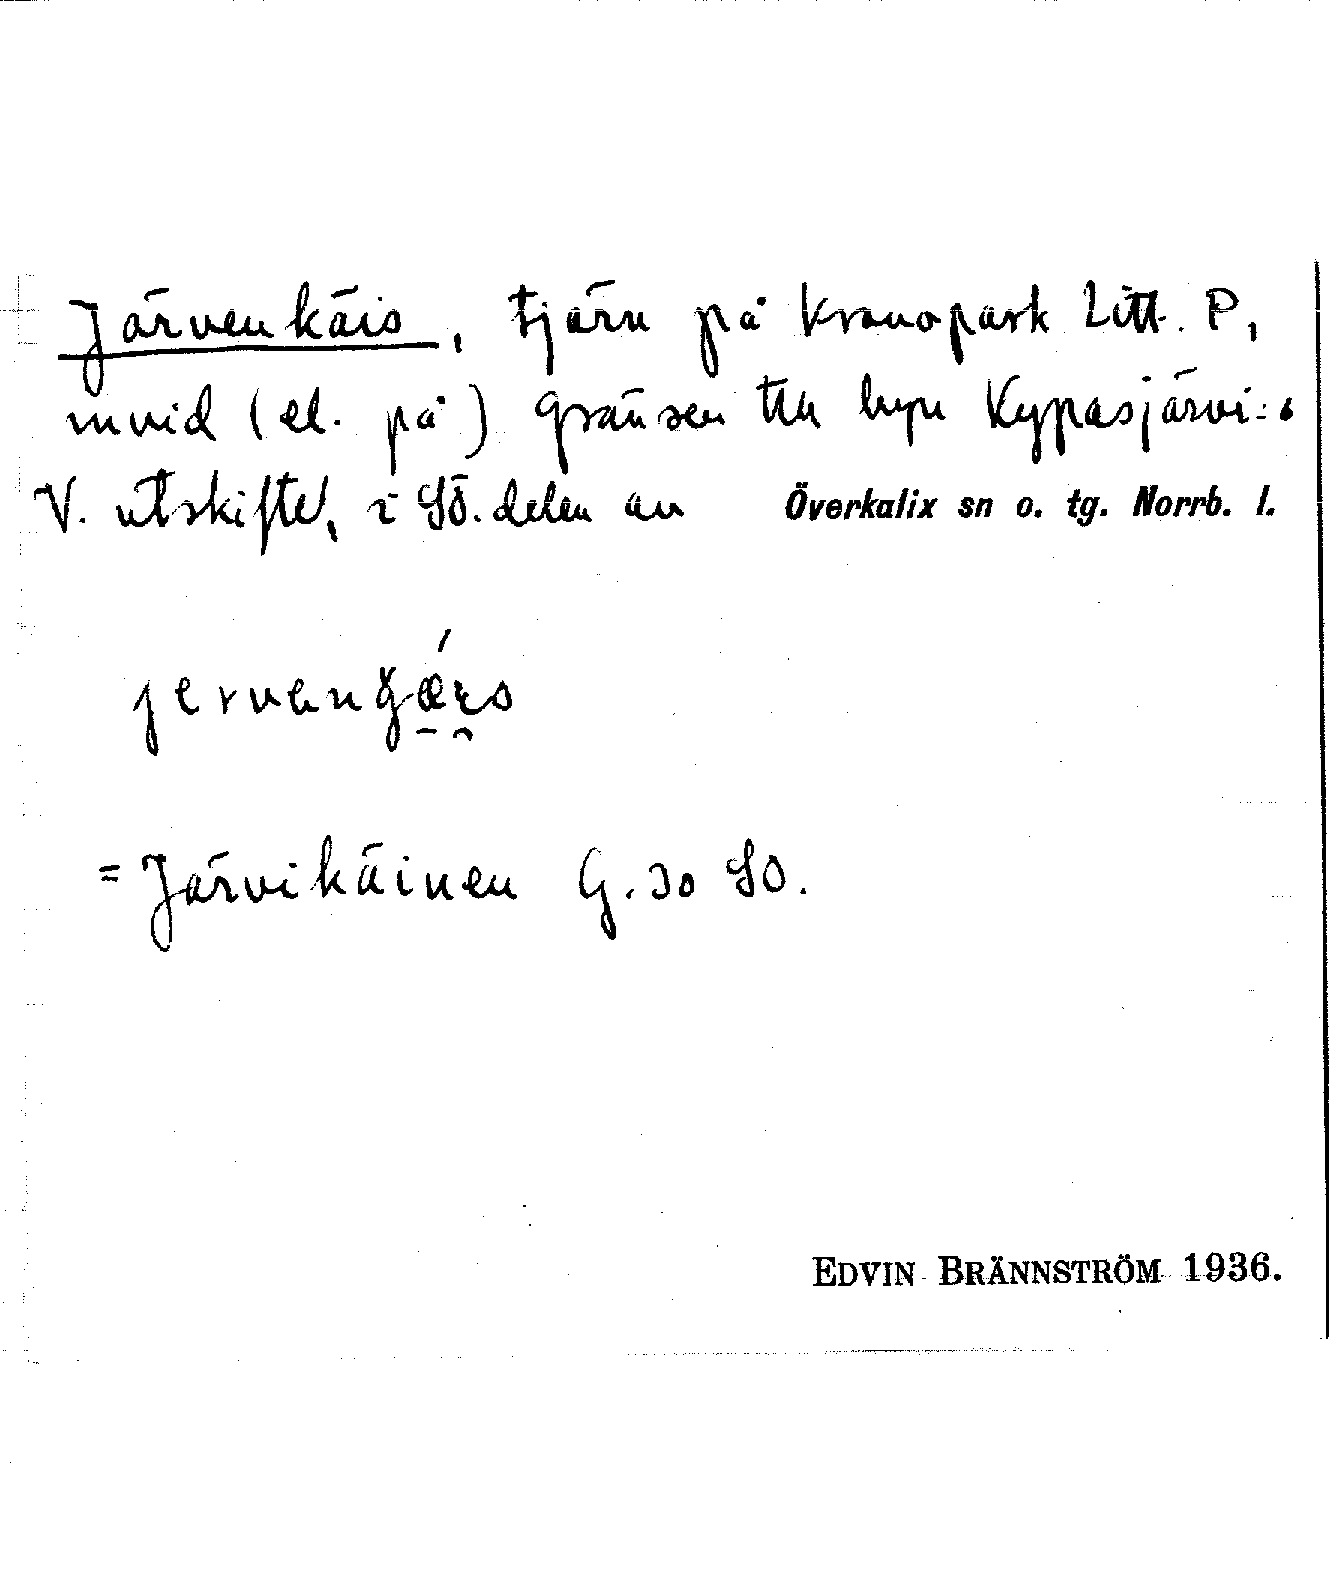 Järvenkäis, tjärn på Kronopark Litt. P,
invid (el. på) gränsen till byn Kypasjärvi:s
V. utskifte, i SÖ. delen av Överkalix sn o. tg. Norrb. l.
jervengǽis
= Järvikäinen G. 30 SO.
EDVIN BRÄNNSTRÖM 1936.